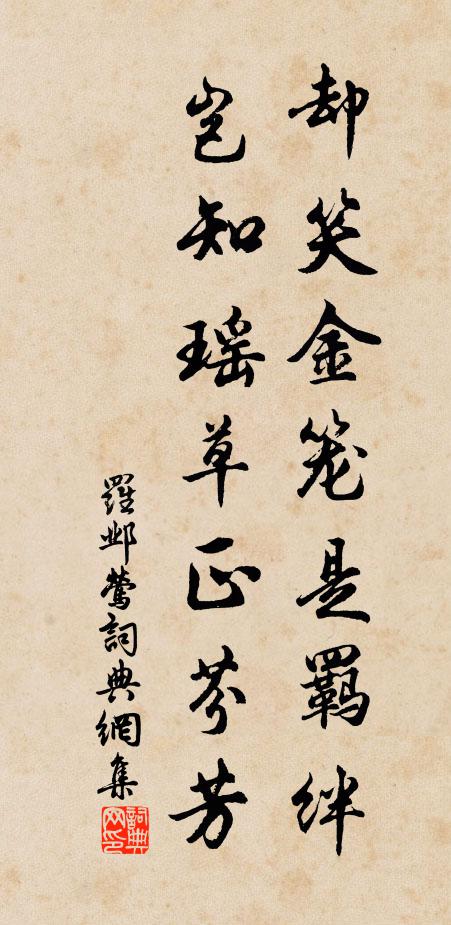 却笑金笼是羁绊
岂知瑶草正芬芳
羅邺鶯詞典網集
詞典网印